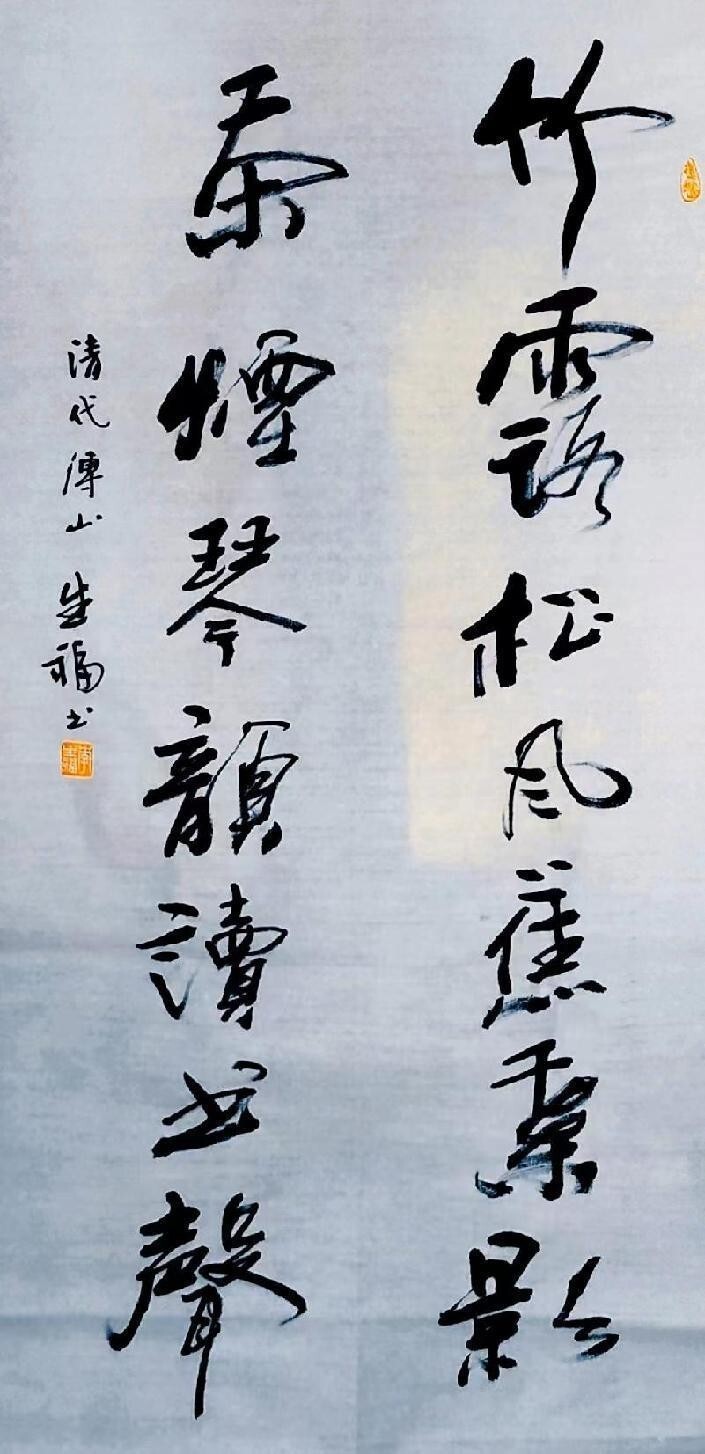 竹露松風蕉葉影
茶煙琴韻讀書聲
清代傅山 生福書